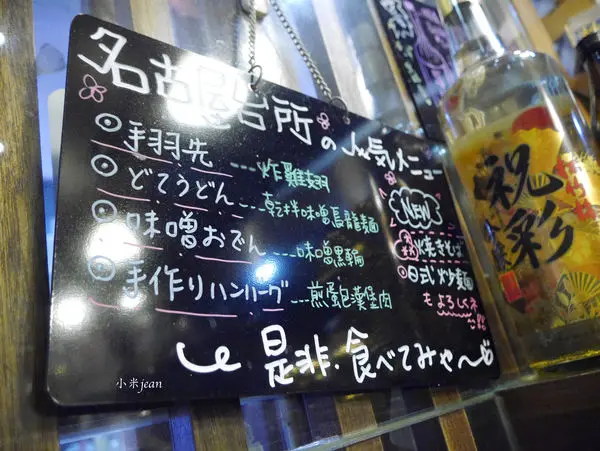 名古屋台所の人気メニュー
◎手羽先---炸雞翅
◎どてうどん---乾拌味噌烏龍麵
◎味噌おでん---味噌黑輪
◎手作りハンバーグ---煎蛋漢堡肉
NEW
焼きそば
日式炒麵
もよろしくネ
是非.食べてみや〜
小米jean
祝彩